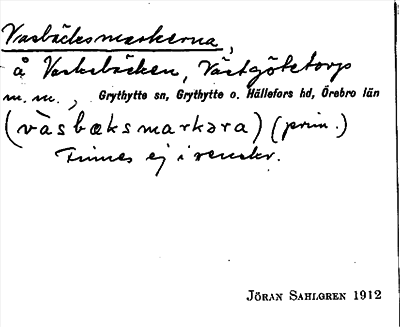 Vasbäcksmarkerna,
å Vasksbäcken, Västgötetorps
m.m., Grythytte sn, Grythytte o. Hällefors hd, Örebro län
(vàsbæksmarkəra) (prim.)
Finnes ej i register.
JÖRAN SAHLGREN 1912